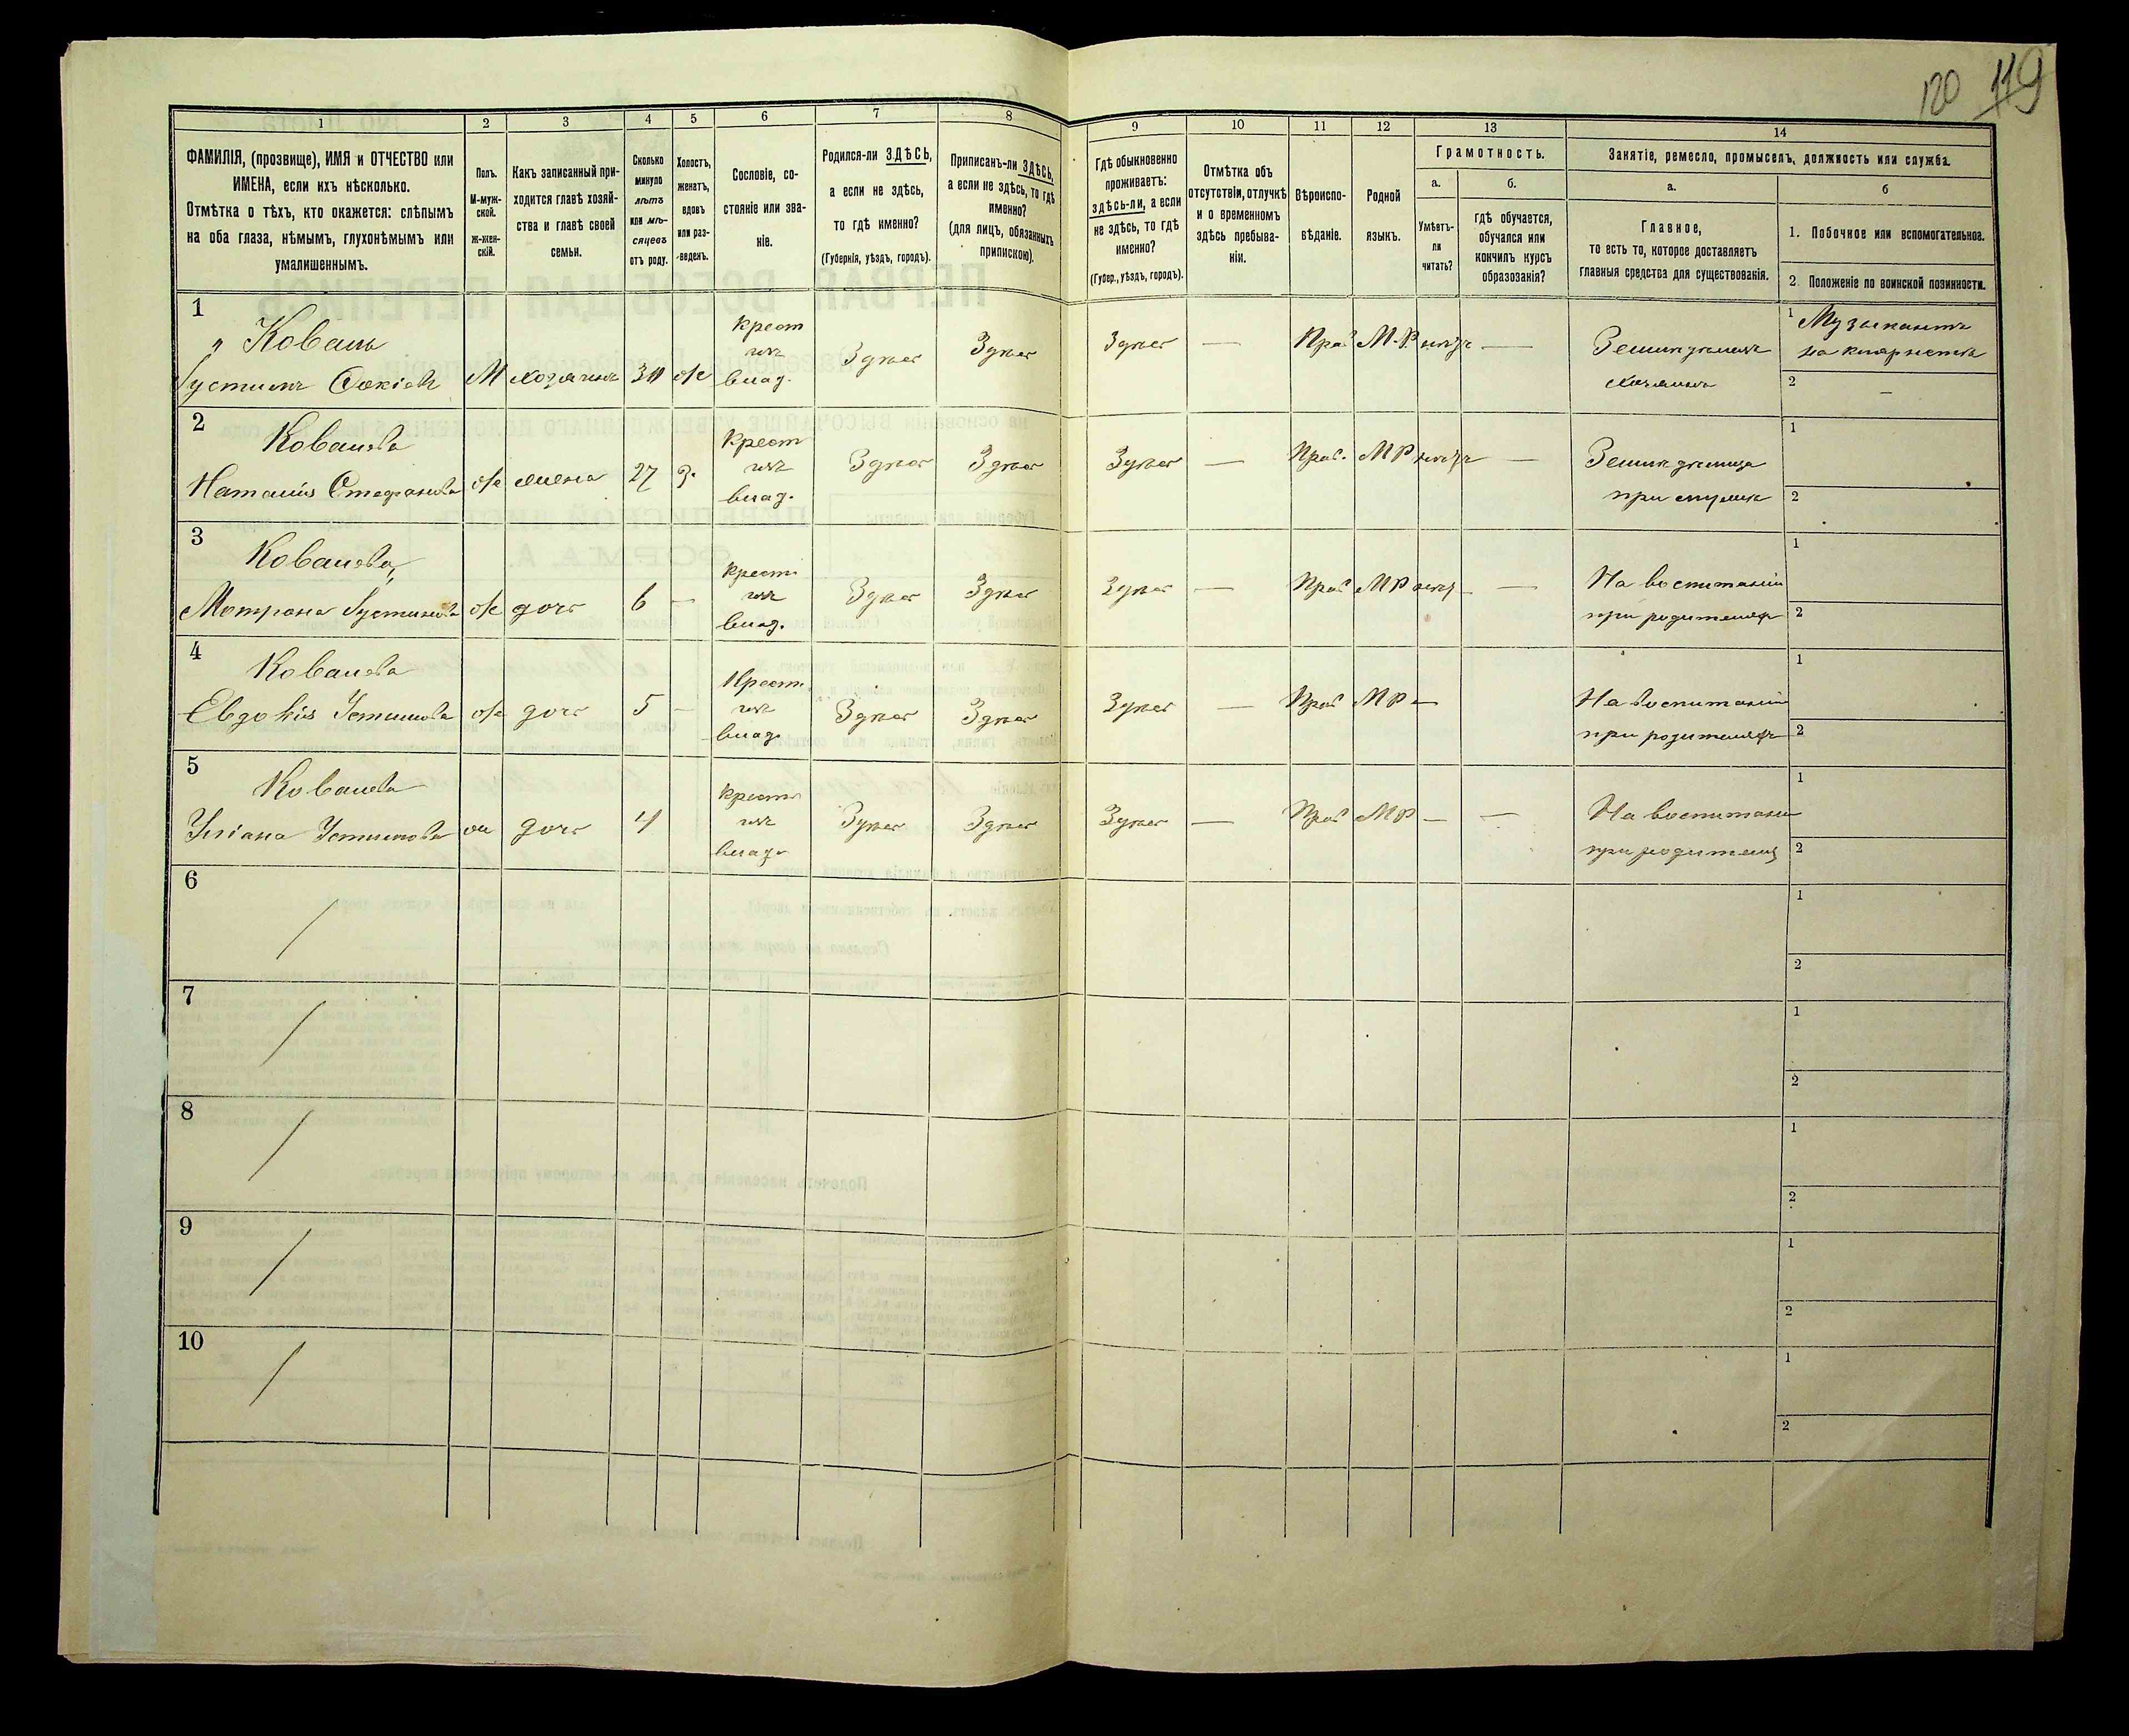 120 119
1 2 3 4 5 6 7 8 9 10 11 12 13 14
ФАМИЛІЯ, (прозвище), ИМЯ и ОТЧЕСТВО или
ИМЕНА, если ихъ нѣсколько.
Отмѣтка о тѣхъ, кто окажется: слѣпымъ
на оба глаза, нѣмымъ, глухонѣмымъ или
умалишеннымъ.
Полъ.
М-муж-
ской.
Ж-жен-
скій.
Какъ записанный при-
ходится главѣ хозяй-
ства и главѣ своей
семьи.
Сколько
минуло
лѣтъ
или мѣ-
сяцевъ
отъ роду.
Холостъ,
женатъ,
вдовъ
или раз-
веденъ.
Сословіе, со-
стояніе или зва-
ніе.
Родился-ли ЗДѢСЬ,
а если не здѣсь,
то гдѣ именно?
(Губернія, уѣздъ, городъ).
Приписанъ-ли ЗДѢСЬ,
а если не здѣсь, то гдѣ
именно?
(для лицъ, обязанныхъ
припискою).
Гдѣ обыкновенно
проживаетъ:
здѣсь-ли, а если
не здѣсь, то гдѣ
именно?
(Губер., уѣздъ, городъ).
Отмѣтка объ
отсутствіи, отлучкѣ
и о временномъ
здѣсь пребыва-
ніи.
Вѣроиспо-
вѣданіе.
Родной
языкъ.
Грамотность.
а.
Умѣетъ-
ли
читать?
б.
гдѣ обучается,
обучался или
кончилъ курсъ
образозанія?
Занятіе, ремесло, промыселъ, должность или служба.
а.
Главное,
то есть то, которое доставляетъ
главныя средства для существованія.
б
1. Побочное или вспомогательноe.
2. Положеніе по воинской повинности.
1
" Коваль
М хозяинъ ж
Крест
влад.
Здѣсь Здѣсь Здѣсь — Прав М-Р —
хозяинъ
1 Музыкантъ
на кларнетѣ
2 —
2
Ковалева
Наталія Стефанова ж жена 27 з.
Крест
влад.
Здѣсь Здѣсь Здѣсь — Прав. МР —
при мужѣ
1
2
3
Ковалева
Мотрона Іустинова ж дочь 6 —
Крест.
влад.
Здѣсь Здѣсь Здѣсь — Прав МР —
На воспитаніи
при родителяхъ
1
2
4
Ковалева
Евдокія Устинова ж дочь 5 —
Крест.
влад.
Здѣсь Здѣсь Здѣсь — Прав МР —
На воспитаніи
при родителяхъ
1
2
5
Ковалева
Уліана Устинова ж дочь 4
Крест
влад.
Здѣсь Здѣсь Здѣсь — Прав МР — —
На воспитани
при родителях
1
2
6
1
2
7
1
2
8
1
2
9
1
2
10
1
2